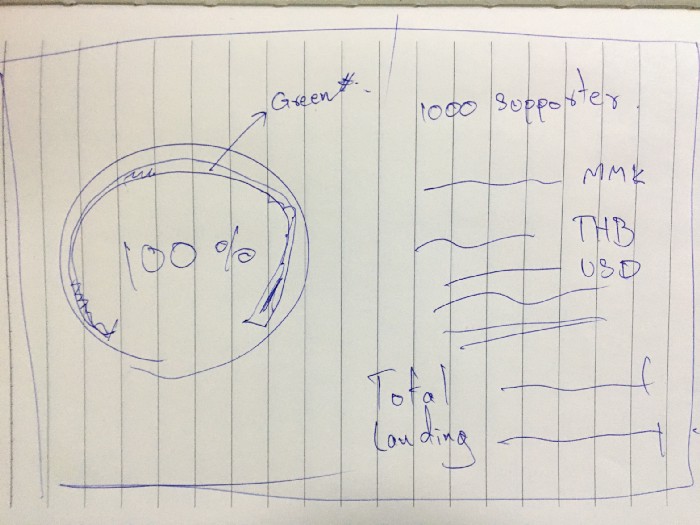 Green #.
100 %
1000 Supporter.
MMK
THB
USD
Total
Landing